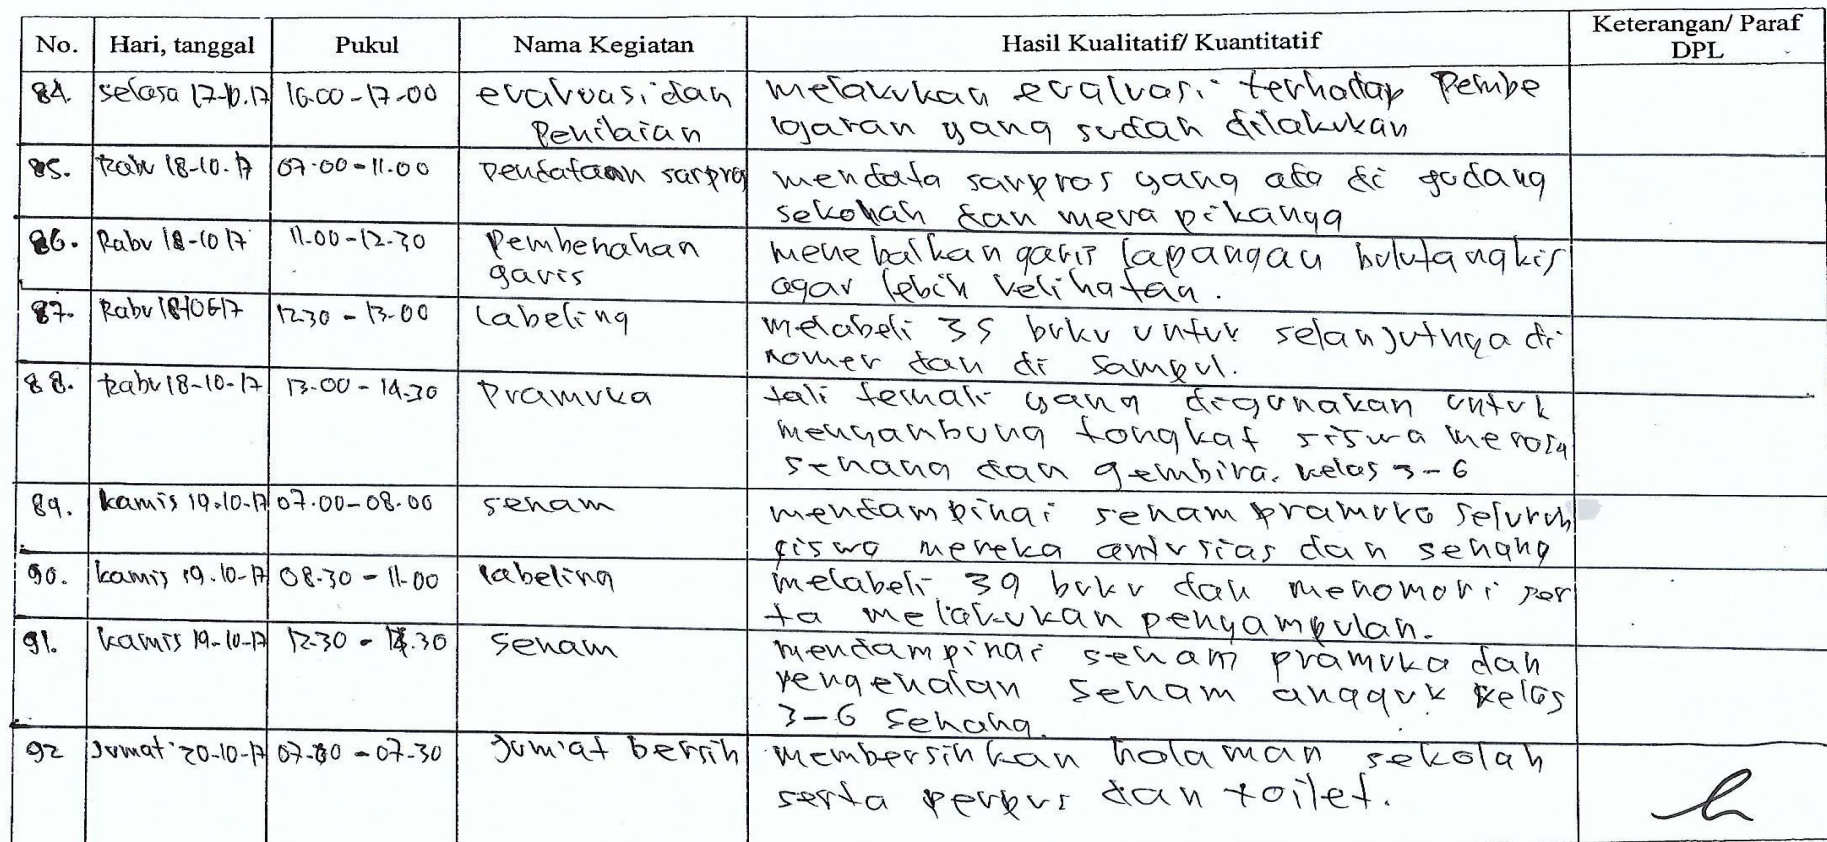 No. Hari, tanggal Pukul Nama Kegiatan Hasil Kualitatif/ Kuantitatif Keterangan/ Paraf DPL
84. selasa 17-10.17 16.00-17-00 evaluasi dan Penilaian melakukan evaluasi terhadap Pembe
lajaran yang sudah dilakukan
85. Rabu 18-10-17 07.00-11.00 Pendataan sarpra mendata sarpras yang ada di gudang
sekolah dan merapikanya
86. Rabu 18-10 17 11.00-12-30 Pembenahan garis menebalkan garis lapangan bulutangkis
agar lebih kelihatan.
87. Rabu 12.30 - 13.00 Labeling melabeli 35 buku untuk selanjutnya di
nomer dan di sampul.
88. Rabu 18-10-17 13.00 - 14.30 Pramuka tali temali yang digunakan untuk
menyambung tongkat siswa merasa
senang dan gembira. kelas 3-6
89. kamis 19.10-17 07.00-08.00 senam mendampingi senam pramuka seluruh
siswa mereka antusias dan senang
90. kamis 19.10-17 08.30 - 11.00 labeling melabeli 39 buku dan menomori ser
ta melakukan penyampulan.
91. kamis 19-10-17 12.30 - senam mendampingi senam pramuka dan
pengenalan senam angguk kelas
3-6 senang.
92 Jumat 20-10-17 07.00 - 07.30 Jum'at bersih membersihkan halaman sekolah
serta perpus dan toilet.